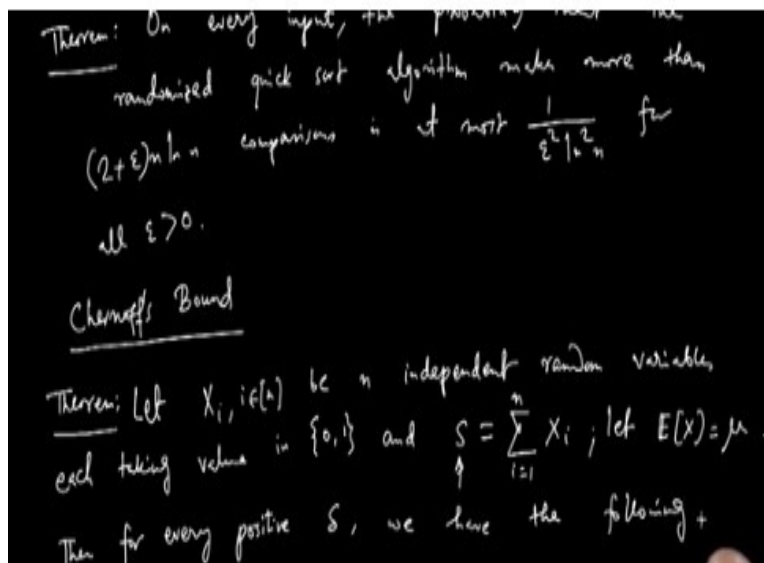 Theorem: On every input, the probability that the
randomized quick sort algorithm makes more than
(2+ε)n ln n comparisons is at most 1/(ε² ln² n) for
all ε>0.
Chernoff's Bound
Theorem: Let Xᵢ, i∈[n] be n independent random variables
each taking value in {0,1} and S = ∑ᵢ₌₁ⁿ Xᵢ ; let E(X)=μ.
Then for every positive δ, we have the following